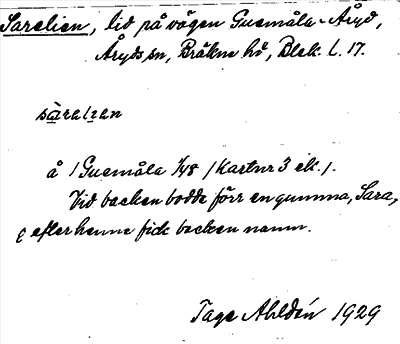 Saralien, lid på vägen Guemåla - Åryd,
Åryds sn, Bräkne hd, Blek. l. 17.
sàralìan
å / Guemåla 1/48 / Kartnr 3 ek. /.
Vid backen bodde förr en gumma, Sara,
o efter henne fick backen namn.
Tage Ahldén 1929